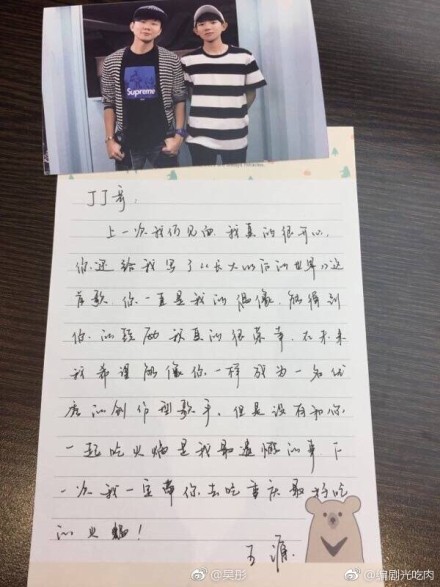 Supreme
JJ哥：
上一次我们见面，我真的很开心，
你还给我写了《长大以后的世界》这
首歌。你一直是我的偶像，能得到
你的鼓励我真的很荣幸，在未来
我希望能像你一样成为一名优
质的创作型歌手，但是没有和你
一起吃火锅是我最遗憾的事，下
一次我一定带你去吃重庆最好吃
的火锅！
王源
@莫彤
@编剧光吃肉